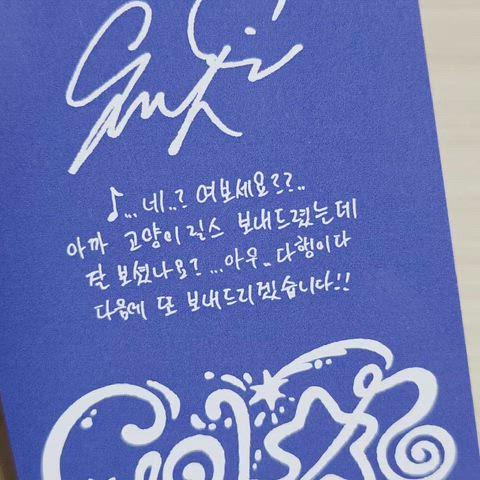 ♪...네..? 여보세요??..
아까 고양이 릴스 보내드렸는데
잘 보셨나요?...아우..다행이다
다음에 또 보내드리겠습니다!!